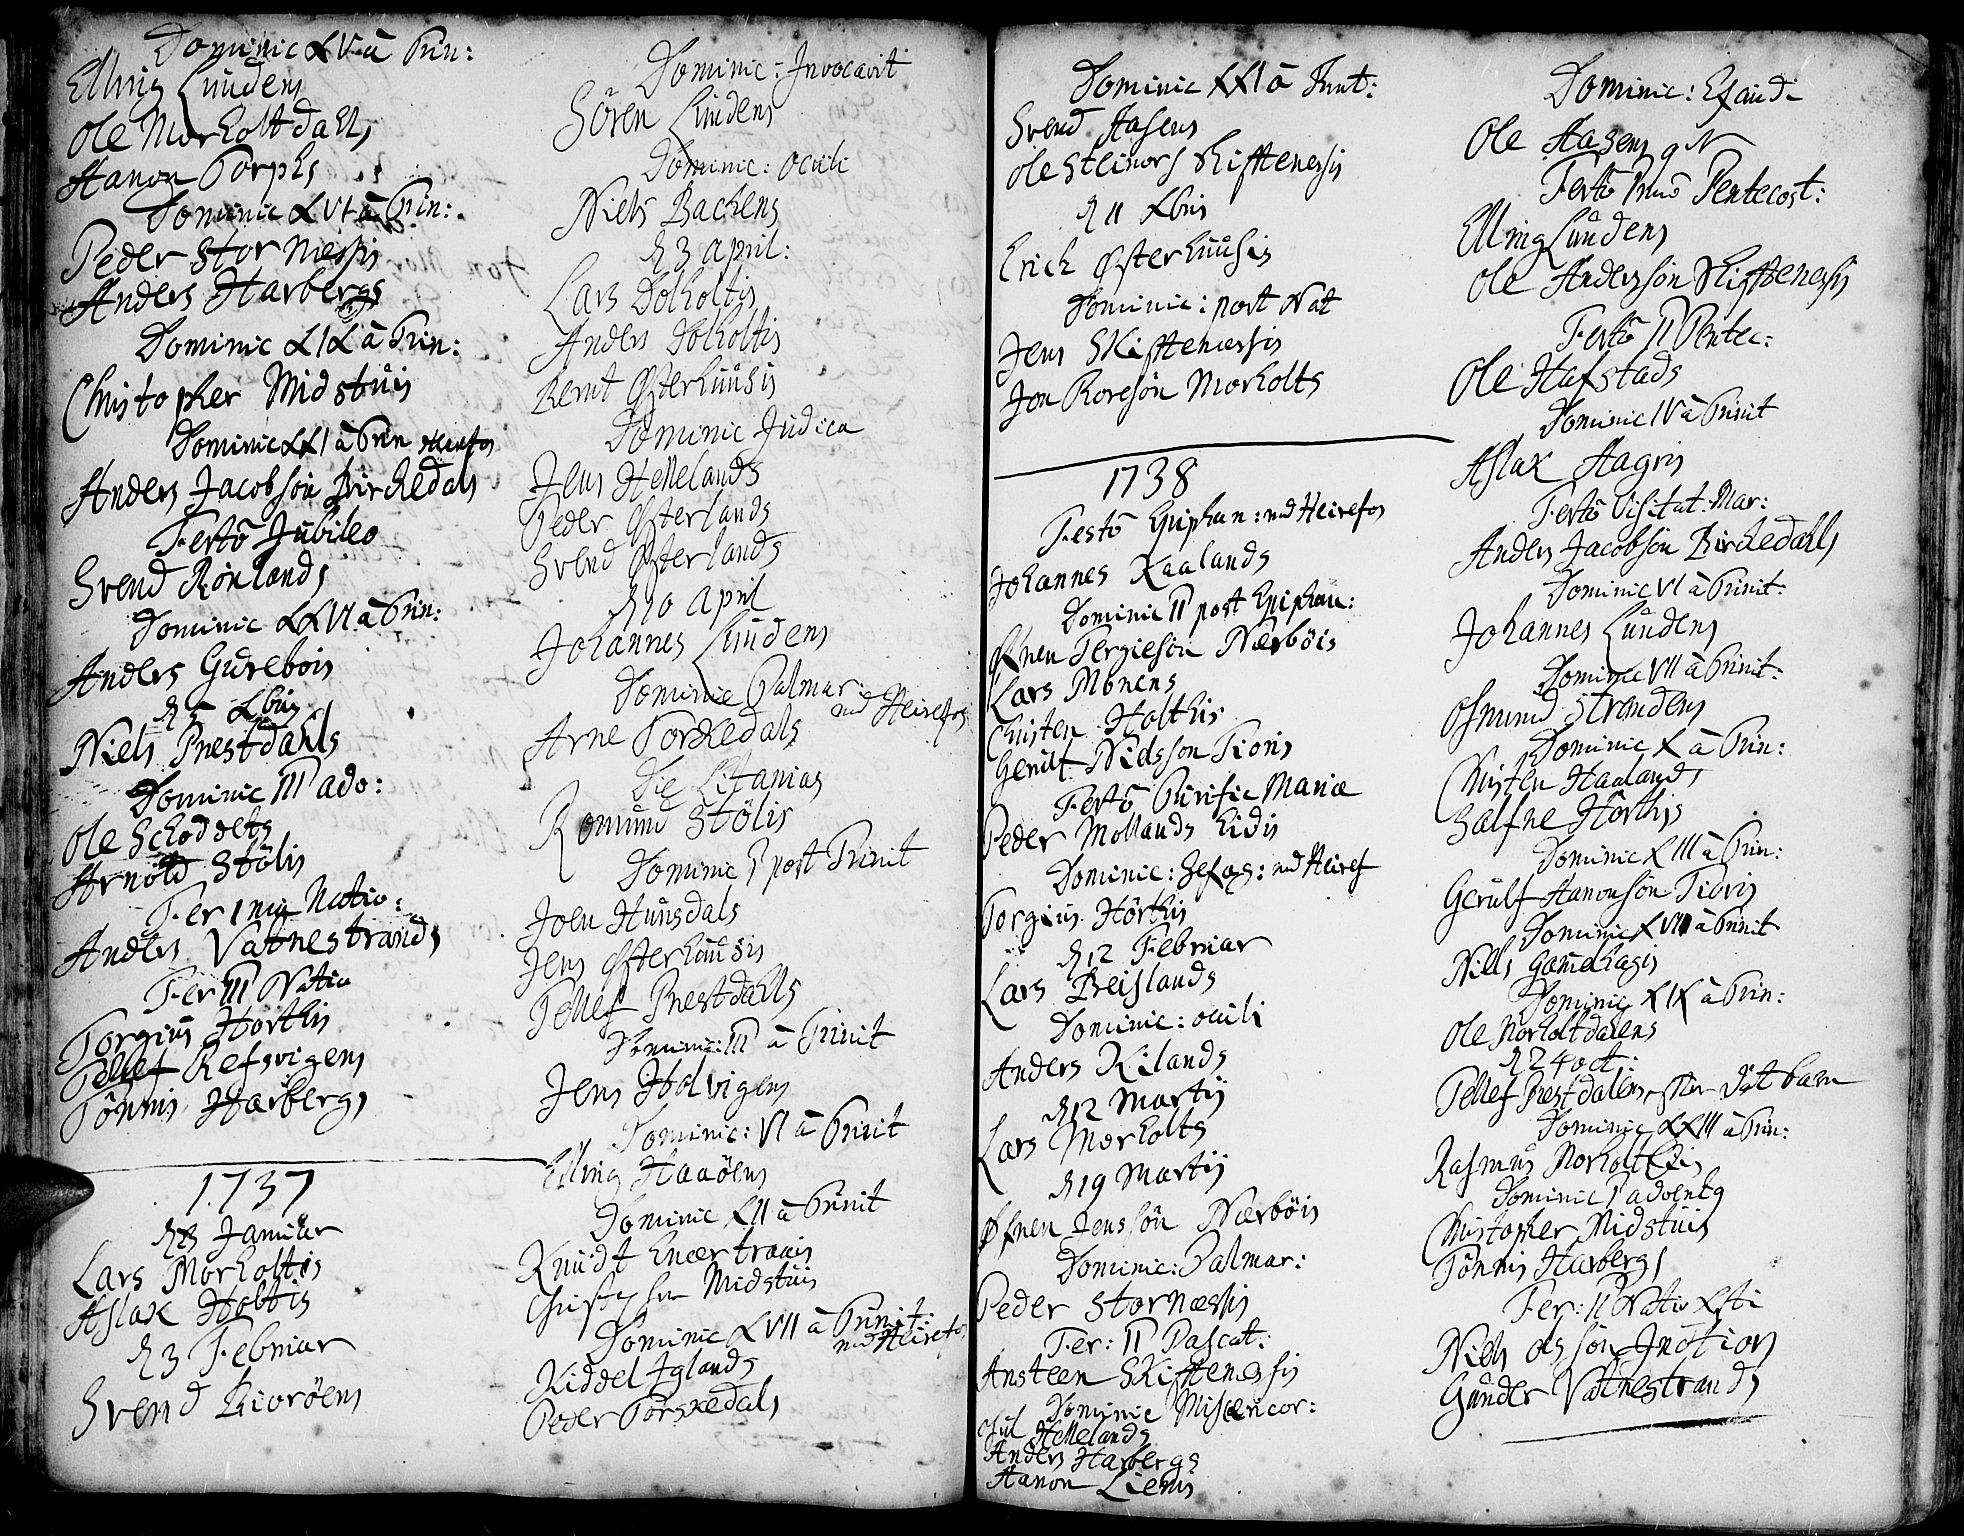 Dominic XV â Trin:
Elling Lundens
Ole Morholtdals
Hanon Torphs
Dominic XVI â Trin:
Peder Stornessis
Anders Harbergs
Dominic XIX â Trin:
Christopher Midstuis
Dominic XXI â Trin
Anders Jacobsön Birchedals
Festô Jubileo
Svend Rönlands
Dominic XXVI â Trin:
Anders Gurebois
d 5 Xbris
Niels Prestdahls
Dominic III adv:
Ole Schoddets
Arnold Stölis
Anders Vatnestrands
Fer III Nativ
Torgius Hörthis
Tellef Refsvigens
Tönnis Harbergs
1737
Januar
Lars Morholtis
Aslak Holtis
d 3 Februar
Svend Rivröens
Dominic: Invocavit
Sören Lundens
Dominic: Oculi
Niels Bachens
d 3 April:
Lars Dolholtis
Anders Dolholtis
Bernt Østerhuusis
Dominic Judica
Jens Hellelands
Peder Østerlands
Svend Østerlands
d 10 April
Johannes Lundens
Dominic Palmar:
ved Heirefos
Arne Torskedals
Die Litanias
Romund Stölis
Dominic I post Trinit
Joen Hunsdals
Jens Østerhuusis
Tellef Prestdalls
Dominic: III â Trinit
Jens Holvigens
Dominic: VI â Trinit
Elling Haaöens
Dominic XII â Trinit
Knudt
Christopher Midstuis
Dominic XVII â Trinit:
ved Heirefos
Kiddel Iglands
Peder Torskedals
Dominic XXI â Trinit:
Svend Hasens
Ole Steinors Skiftenessis
d 11 Xbris
Erich Østerhuusis
Dominic: post Nat
Jens Skiftenessis
Jon Roresön Morholts
1738
Festô Epiphan: ved Heirefos
Johannes Kaalands
Dominic II post Epiphan:
Øfnen Tergiesön Nærböis
Lars Monens
Christen Holthis
Gerulf Nielsson Tioris
Festô Purific Mariæ
Peder Mollands Eidis
Dominic: Sexag: ved Heiref
Torgius Hörthis
d 12 Februar
Lars Beislands
Dominic: Oculi
Anders Kilands
d 12 Martij
Lars Morholts
d 19 Martij
Øfnen Jenssön Nærböis
Dominic: Palmar:
Peder Stornæssis
Fer: II Pascat:
Ansteen Skiftenessis
Dominic Misericor:
Jul Hellelands
Anders Harbergs
Hanon Liens
Dominic: Exaudi
Ole Hasens
Festô Imo Pentecost:
Elling Lundens
Ole Anderssön Skiftenessis
Festô II Pentec:
Ole Hafstads
Dominic IV â Trinit
Aslak Hagris
Festô Visitat: Mar:
Anders Jacobsön Birchedahls
Dominic VI â Trinit:
Johannes Lundens
Dominic VII â Trinit:
Osmund Strandens
Dominic X â Trin:
Christen Haalands
Salfne Hörthis
Dominic XIII â Trin:
Gerulf Hanonsön Tioris
Dominic XVII â Trinit
Niels Gamelhagis
Dominic XIX â Trin:
Ole Morholtdalens
d 24 oct:
Tellef Prestdalens efter Sit barn
Dominic XXIII â Trin:
Rasmus Morholt Eidis
Dominic I advents
Christopher Midstuis
Tönnis Harbergs
Fer: II Nativ Xsti
Niels Olssön
Gunder Vatnestrands